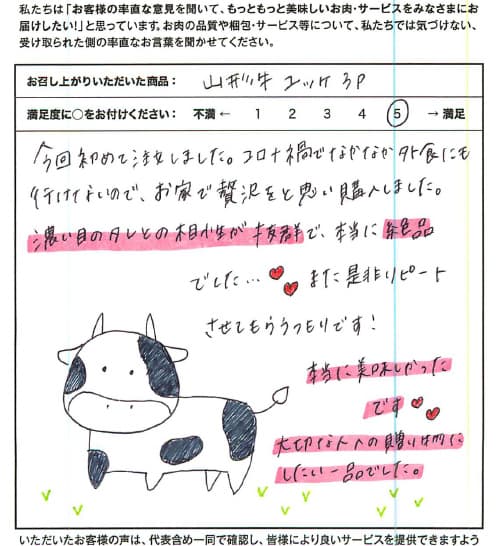 私たちは「お客様の率直な意見を聞いて、もっともっと美味しいお肉・サービスをみなさまにお
届けしたい！」と思っています。お肉の品質や梱包・サービス等について、私たちでは気づけない、
受け取られた側の率直なお言葉を聞かせてください。
お召し上がりいただいた商品： 山形牛 ユッケ 3P
満足度に○をお付けください： 不満 ← 1 2 3 4 5 → 満足
今回初めて注文しました。コロナ禍でなかなか外食にも
行けないので、お家で贅沢をと思い購入しました。
濃い目のタレとの相性が抜群で、本当に絶品
でした… また是非リピート
させてもらうつもりです！
本当に美味しかった
です
大切な人への贈り物に
したい一品でした。
いただいたお客様の声は、代表含め一同で確認し、皆様により良いサービスを提供できますよう